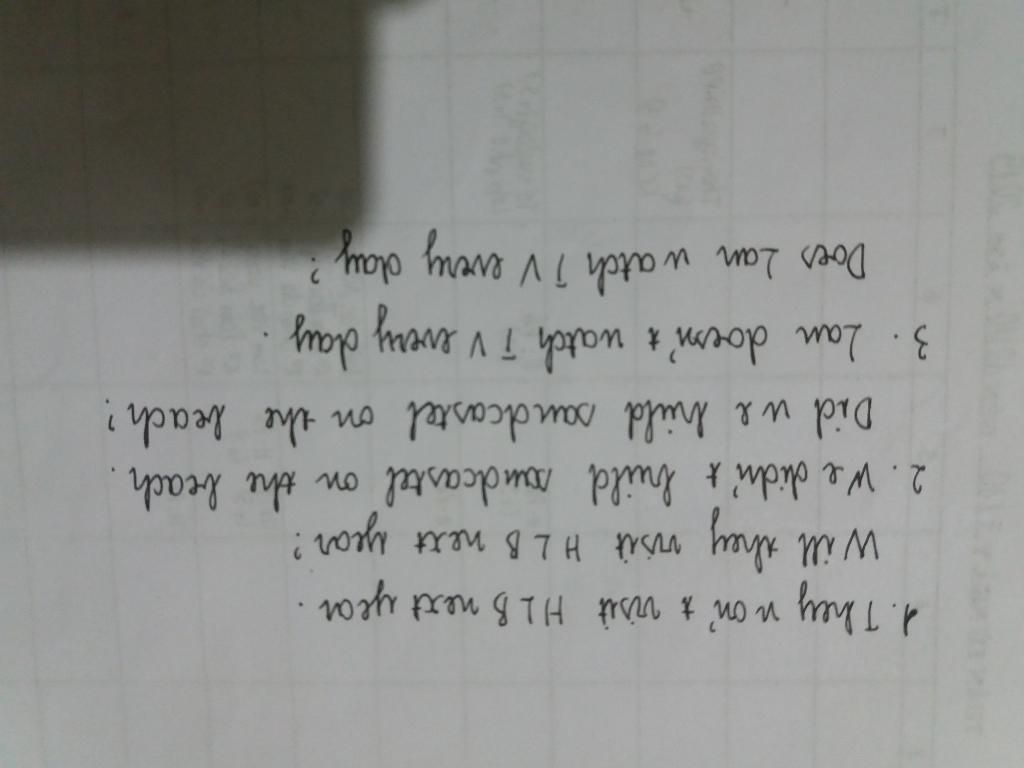 1. They won't visit HLB next year.
Will they visit HLB next year?
2. We didn't build sandcastel on the beach.
Did we build sandcastel on the beach?
3. Lan doesn't watch TV every day.
Does Lan watch TV every day?